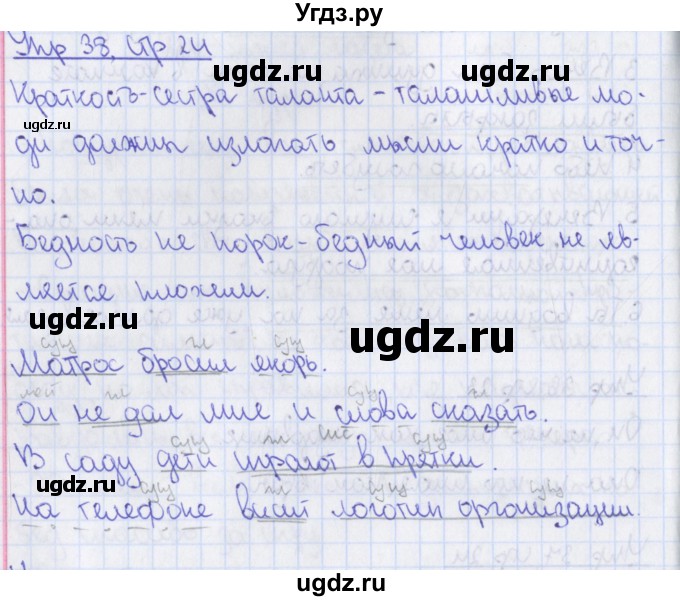 Угдз.ру
Упр 38, стр 24
ugdz.ru
ugdz.ru
Краткость-сестра таланта - талантливые лю-
ugdz.ru
ди должны излагать мысли кратко и точ-
но.
Бедность не порок - бедный человек не яв-
ugdz.ru
ляется плохим.
ugdz.ru
сущ гл сущ
Матрос бросил якорь.
ugdz.ru
мест гл сущ гл
Он не дал мне и слова сказать.
сущ гл сущ
В саду дети играют в прятки.
ugdz.ru
ugdz.ru
сущ гл сущ сущ
На телефоне висит логотип организации.
ugdz.ru